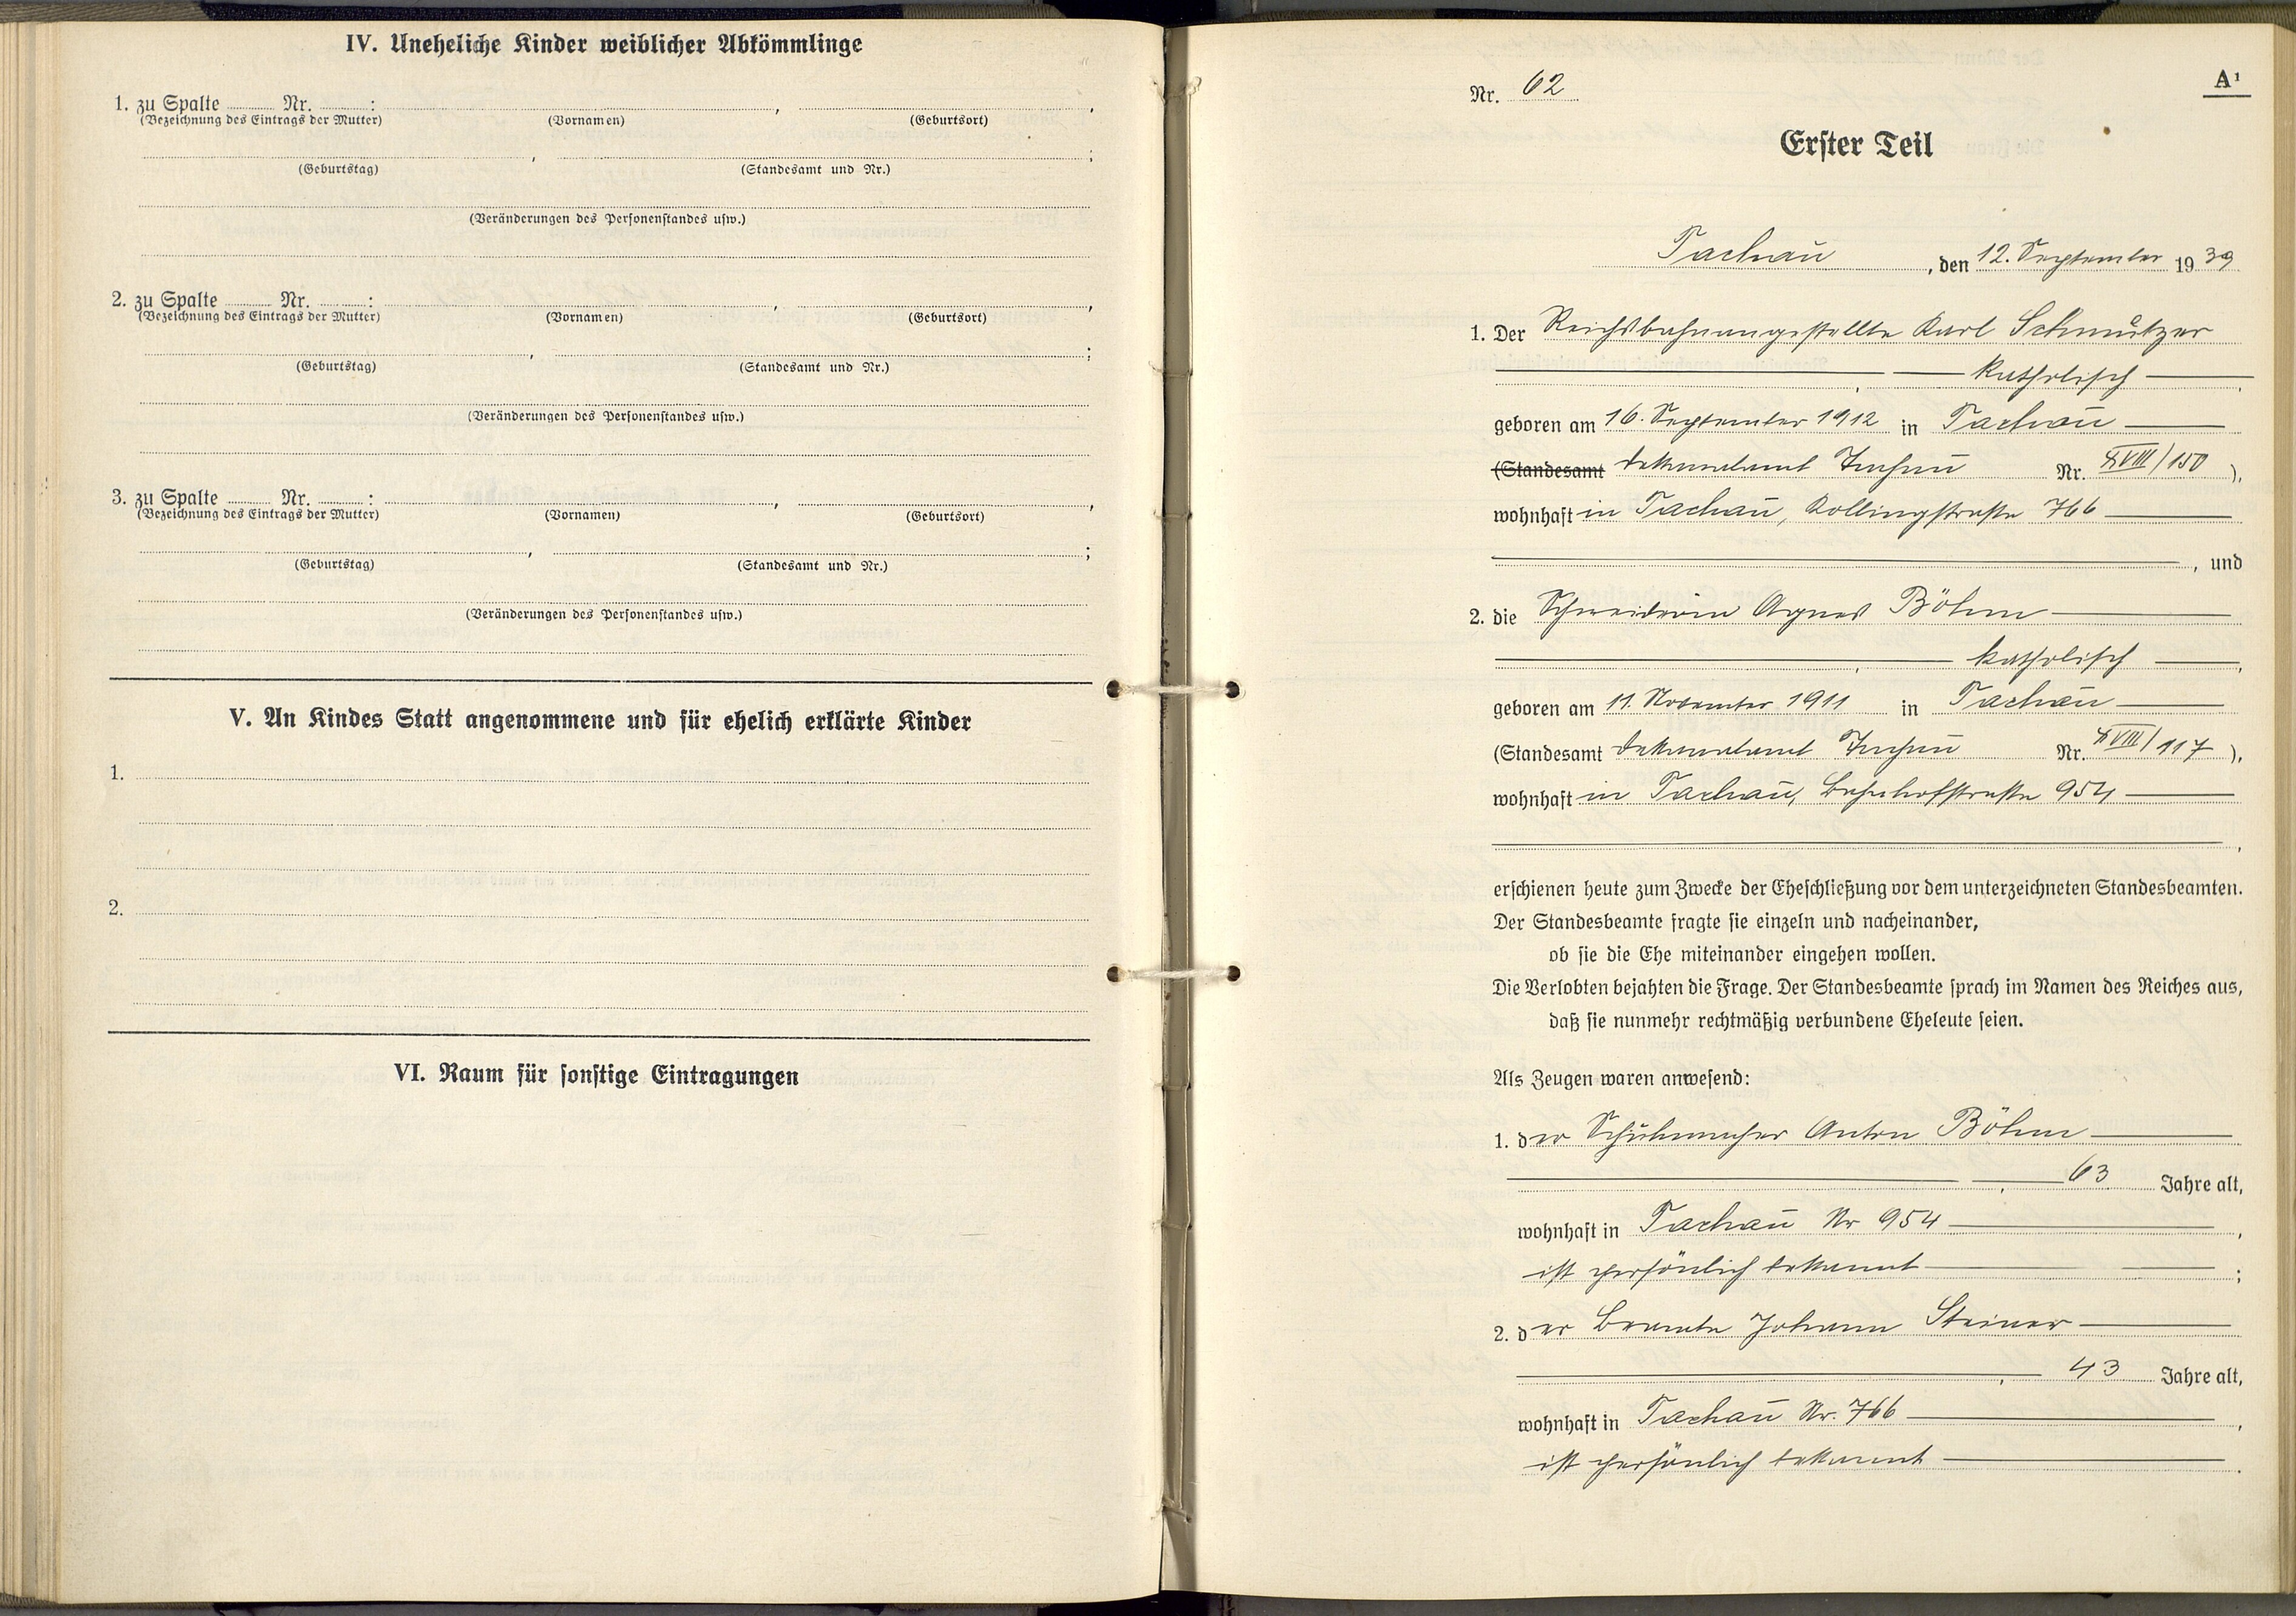 IV. Uneheliche Kinder weiblicher Abkömmlinge
1. zu Spalte ........ Nr. ........:
(Bezeichnung des Eintrags der Mutter) (Vornamen) , (Geburtsort) ,
(Geburtstag) , (Standesamt und Nr.) ;
(Veränderungen des Personenstandes usw.)
2. zu Spalte ........ Nr. ........:
(Bezeichnung des Eintrags der Mutter) (Vornamen) , (Geburtsort) ,
(Geburtstag) , (Standesamt und Nr.) ;
(Veränderungen des Personenstandes usw.)
3. zu Spalte ........ Nr. ........:
(Bezeichnung des Eintrags der Mutter) (Vornamen) , (Geburtsort) ,
(Geburtstag) , (Standesamt und Nr.) ;
(Veränderungen des Personenstandes usw.)
V. An Kindes Statt angenommene und für ehelich erklärte Kinder
1.
2.
VI. Raum für sonstige Eintragungen
A¹
Nr. 62
Erster Teil
Tachau, den 12. September 1939
1. Der Reichsbahnangestellte Karl Schmutzer
katholisch,
geboren am 16. September 1912 in Tachau
(Standesamt Dekanalamt Tachau Nr. XVIII/150),
wohnhaft in Tachau, Kollingstraße 766
, und
2. die Schneiderin Agnes Böhm
katholisch,
geboren am 11. November 1911 in Tachau
(Standesamt Dekanalamt Tachau Nr. XVIII/117),
wohnhaft in Tachau, Bahnhofstraße 954
,
erschienen heute zum Zwecke der Eheschließung vor dem unterzeichneten Standesbeamten.
Der Standesbeamte fragte sie einzeln und nacheinander,
ob sie die Ehe miteinander eingehen wollen.
Die Verlobten bejahten die Frage. Der Standesbeamte sprach im Namen des Reiches aus,
daß sie nunmehr rechtmäßig verbundene Eheleute seien.
Als Zeugen waren anwesend:
1. der Schuhmacher Anton Böhm
, 63 Jahre alt,
wohnhaft in Tachau Nr 954,
ist persönlich bekannt;
2. der Beamte Johann Steiner
, 43 Jahre alt,
wohnhaft in Tachau Nr. 766,
ist persönlich bekannt.